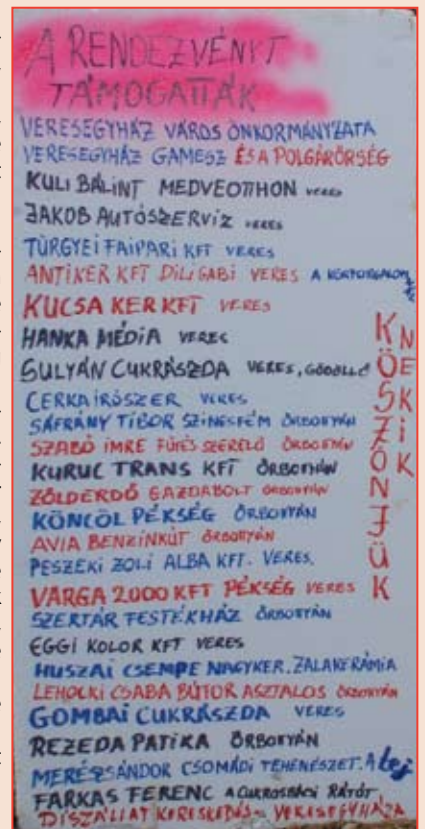 A RENDEZVÉNYT
TÁMOGATTÁK
VERESEGYHÁZ VÁROS ÖNKORMÁNYZATA
VERESEGYHÁZ GAMESZ ÉS A POLGÁRŐRSÉG
KULI BÁLINT MEDVEOTTHON VERES
JAKOB AUTÓSZERVIZ VERES
TÜRGYEI FAIPARI KFT VERES
ANTIKER KFT DILI GABI VERES A
KUCSA KER KFT VERES
HANKA MÉDIA VERES
SULYÁN CUKRÁSZDA VERES, GÖDÖLLŐ
CERKA IRÓSZER VERES
SÁFRÁNY TIBOR SZINESFÉM ŐRBOTTYÁN
SZABÓ IMRE FŰTÉS SZERELŐ ŐRBOTTYÁN
KURUC TRANS KFT ŐRBOTTYÁN
ZÖLDERDŐ GAZDABOLT ŐRBOTTYÁN
KÖNCÖL PÉKSÉG ŐRBOTTYÁN
AVIA BENZINKÚT ŐRBOTTYÁN
PESZEKI ZOLI ALBA KFT. VERES.
VARGA 2000 KFT PÉKSÉG VERES
SZERTÁR FESTÉKHÁZ ŐRBOTTYÁN
EGGI KOLOR KFT VERES
HUSZAI CSEMPE NAGYKER. ZALAKERÁMIA
LEHOCKI CSABA BÚTOR ASZTALOS ŐRBOTTYÁN
GOMBAI CUKRÁSZDA VERES
REZEDA PATIKA ŐRBOTTYÁN
SÁNDOR CSOMÁDI TEHENÉSZET. A tej
FARKAS FERENC A CUKROSBÁCSI RÁTÓT
DISZÁLLAT KERESKEDÉS - VERESEGYHÁZA
KÖSZÖNJÜK
NEKIK